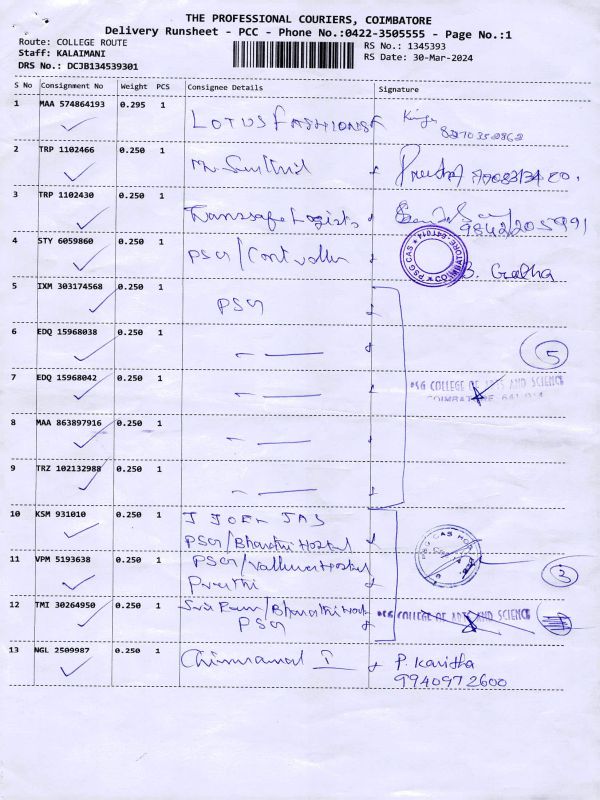 THE PROFESSIONAL COURIERS, COIMBATORE
Delivery Runsheet - PCC - Phone No.:0422-3505555 - Page No.:1
Route: COLLEGE ROUTE
Staff: KALAIMANI
DRS No.: DCJB134539301
RS No.: 1345393
RS Date: 30-Mar-2024
S No Consignment No Weight PCS Consignee Details Signature
1 MAA 574864193 0.295 1 LOTUS FASHIONS
2 TRP 1102466 0.250 1
3 TRP 1102430 0.250 1 Transsafe Logists
4 STY 6059860 0.250 1 PSG / Controller B.
PSG CAS COIMBATORE-641014
5 IXM 303174568 0.250 1 PSG
6 EDQ 15968038 0.250 1 5
7 EDQ 15968042 0.250 1 PSG COLLEGE OF ARTS AND SCIENCE
COIMBATORE 641 014
8 MAA 863897916 0.250 1
9 TRZ 102132988 0.250 1
10 KSM 931010 0.250 1 J JOEL JAS
PSG/Bharathi Hostel
11 VPM 5193638 0.250 1 PSG/Valluvar Hostel 3
Preethi
12 TMI 30264950 0.250 1 Bharathi Host PSG COLLEGE OF ARTS AND SCIENCE
PSG
13 NGL 2509987 0.250 1 P. Kavitha
9940972600